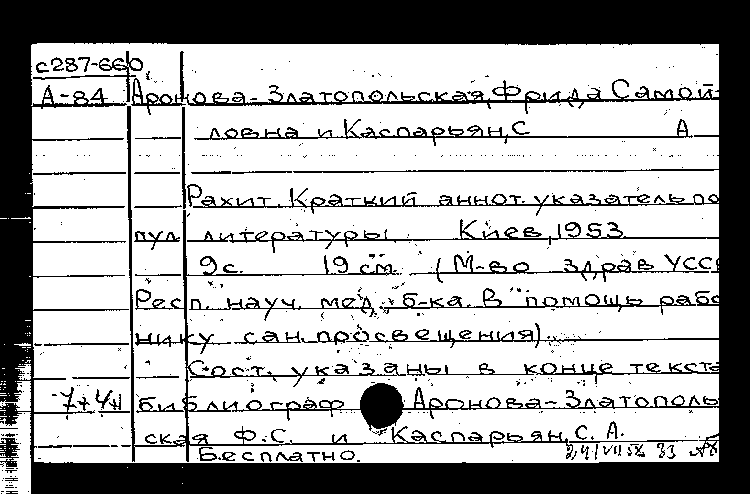 с287-660
А-84 Аронова-Златопольская, Фрида Самой-
ловна и Каспарьян, С А
Рахит. Краткий аннот. указатель по
пул литературы. Киев, 1953
9с. 19 см. (М-во здрав УССР
Респ. науч. мед. б-ка. В помощь рабо
нику сан. просвещения).
Сост. указаны в конце текста
библиограф Аронова-Златополь
ская Ф.С. и Каспарьян, С. А.
Бесплатно.